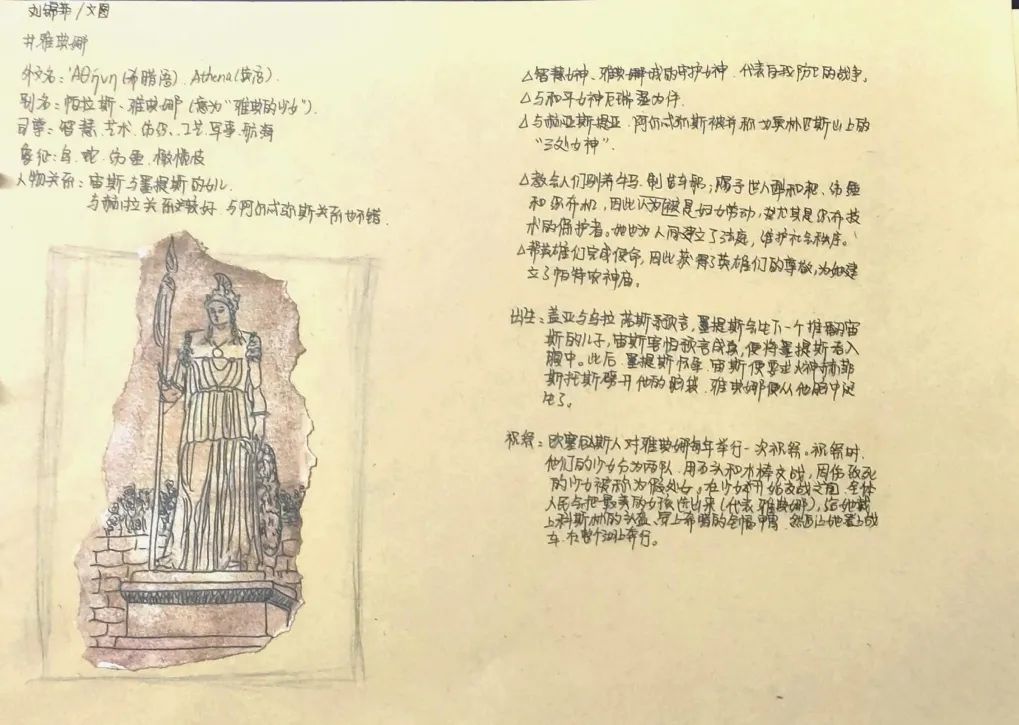 刘锦菲/文图
#雅典娜
外文名：Ἀθήνη(希腊语). Athena(英语).
别名：帕拉斯、雅典娜(意为"雅典的少女").
司掌：智慧.艺术.纺织.工艺.军事.航海
象征：鸟.蛇.纺锤.橄榄枝
人物关系：宙斯与墨提斯的女儿.
与赫拉关系较好.与阿尔忒弥斯关系也不错.
△智慧女神、雅典娜城的守护女神.代表自我防卫的战争。
△与和平女神厄瑞涅为伴.
△与赫斯提亚.阿尔忒弥斯被并称为奥林匹斯山上的
"三处女神".
△教会人们驯养牛马.制造车船；赐予世人犁和耙、纺锤
和织布机，因此认为她是妇女劳动，尤其是织布技
术的保护者。她也为人间建立了法庭，维护社会秩序。
△帮英雄们完成使命，因此获得了英雄们的尊敬，为她建
立了帕特农神庙。
出生：盖亚与乌拉诺斯预言，墨提斯会生下一个推翻宙
斯的儿子，宙斯害怕预言成真，便将墨提斯吞入
腹中。此后 宙斯便要求火神赫菲
斯托斯劈开他的脑袋.雅典娜便从他脑中诞
生了。
祝祭：欧塞 斯人对雅典娜每年举行一次祝祭。祝祭时.
他们的少女分为两队.用石头和木棒交战，因伤致死
的少女被称为假处女。在少女开始交战之前.全体
人民会把最美的女孩选出来(代表雅典娜)，给她戴
上科斯林的头盔、穿上希腊的全幅甲胄.然后让她登上战
车.在整个湖上奔行。